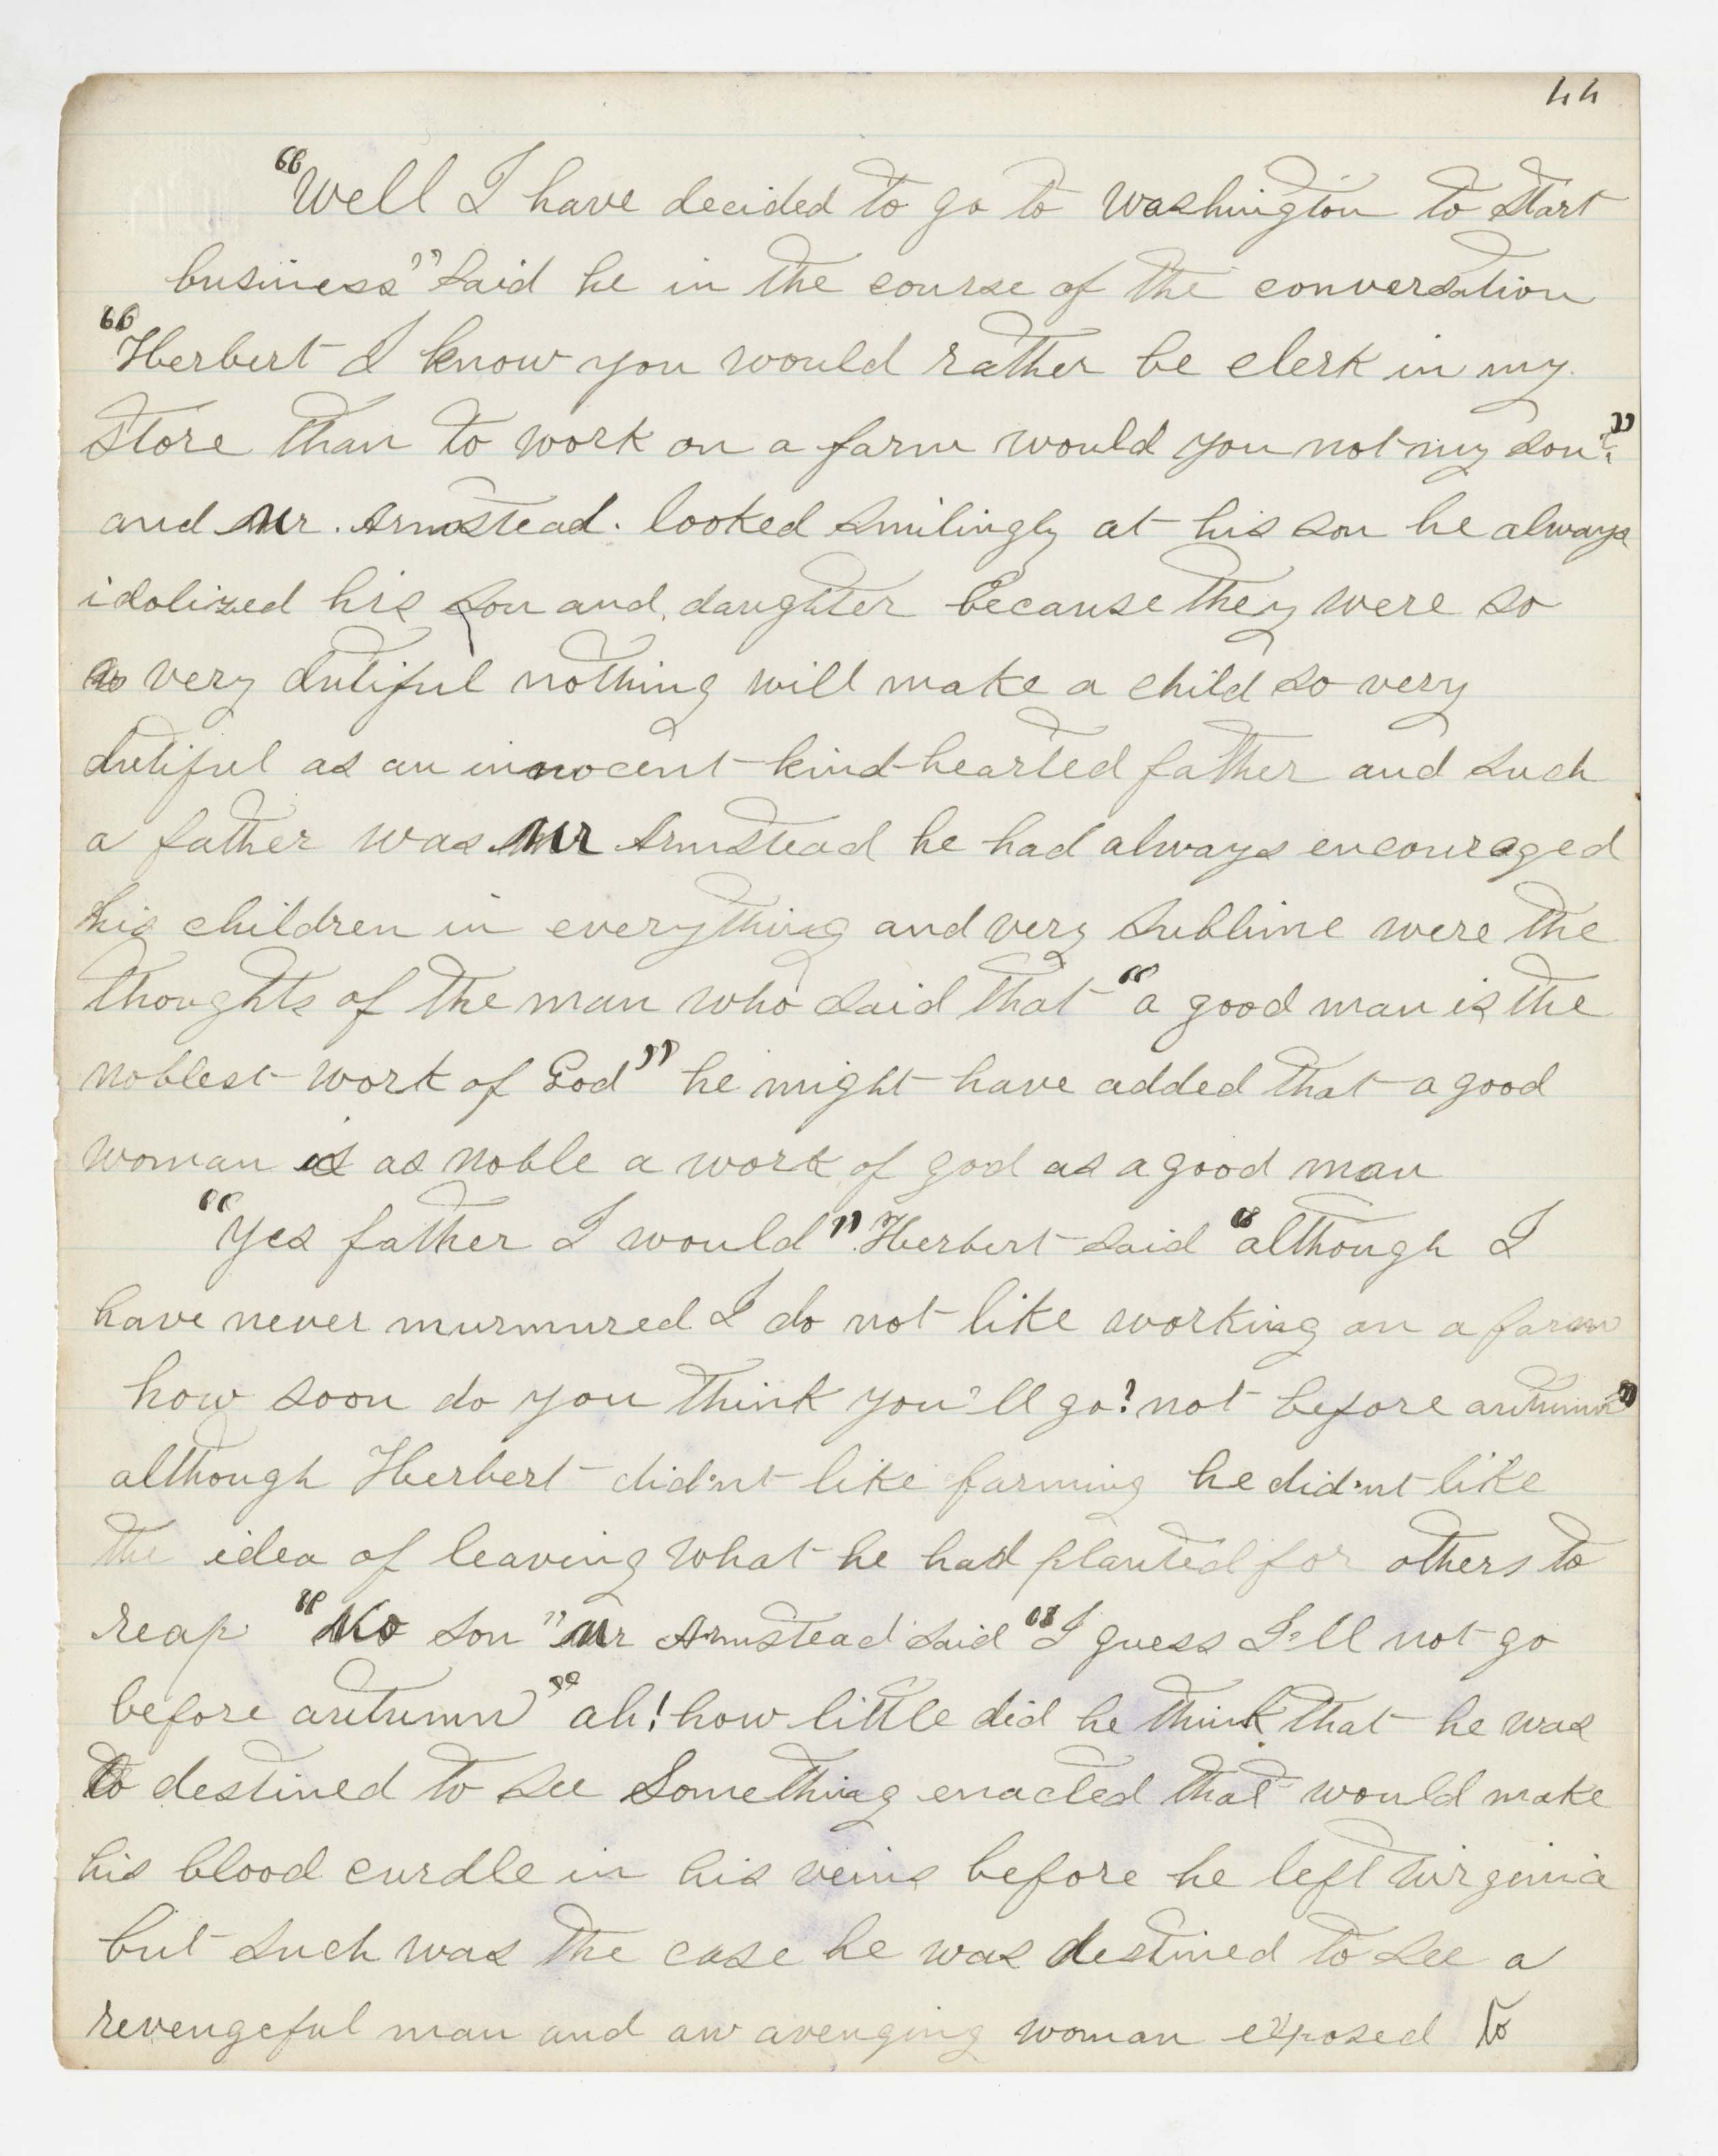 44
"Well I have decided to go to Washington to start
business" said he in the course of the conversation
"Herbert I know you would rather be clerk in my
store than to work on a farm would you not my son?"
and Mr. Armstead. looked smilingly at his son he always
idolized his son and daughter because they were so
very dutiful nothing will make a child so very
dutiful as an innocent kind-hearted father and such
a father was Mr Armstead he had always encouraged
his children in everything and very sublime were the
thoughts of the man who said that "a good man is the
noblest work of God" he might have added that a good
woman is as noble a work of god as a good man
"Yes father I would" Herbert said "although I
have never murmured I do not like working on a farm
how soon do you think you'll go? not before autumn"
although Herbert did'nt like farming he did'nt like
the idea of leaving what he had planted for others to
reap "No son" Mr Armstead said "I guess I'll not go
before autumn" ah! how little did he think that he was
to destined to see something enacted that would make
his blood curdle in his veins before he left Virginia
but such was the case he was destined to see a
revengeful man and an avenging woman exposed to